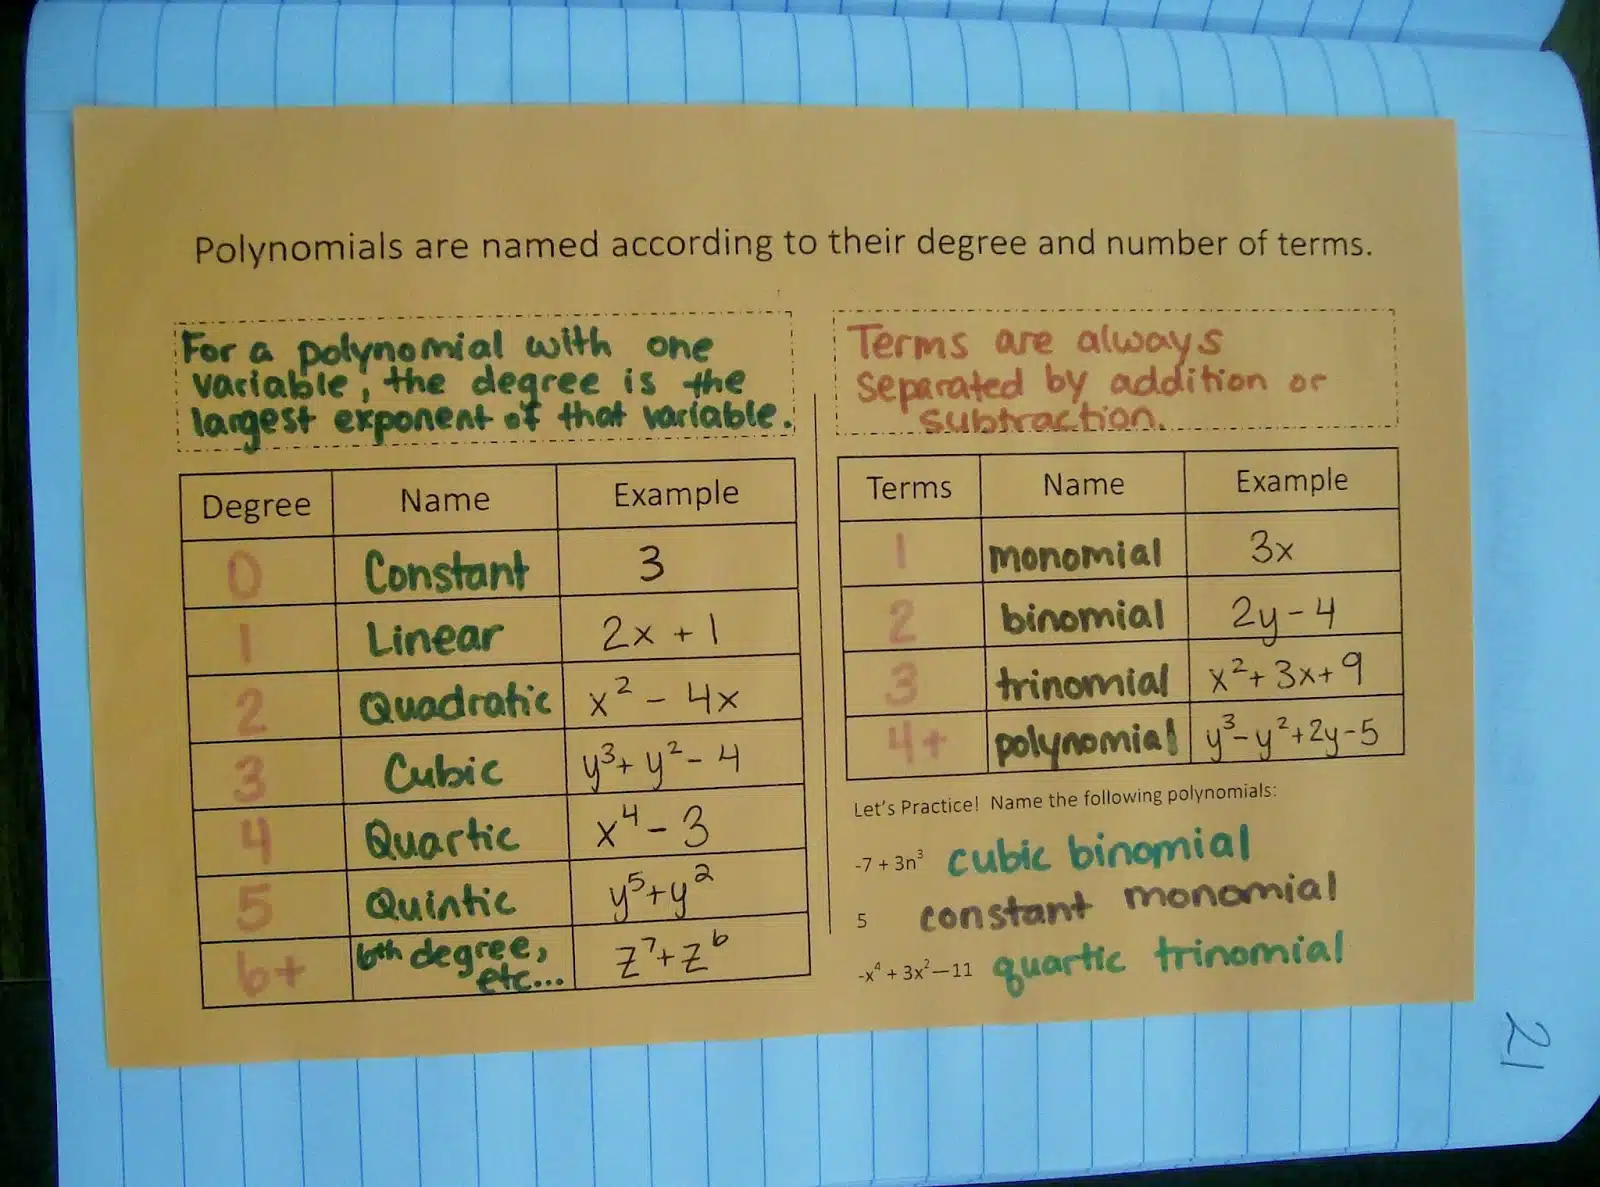 Polynomials are named according to their degree and number of terms.
For a polynomial with one
variable, the degree is the
largest exponent of that variable.
Degree Name Example
0 Constant 3
1 Linear 2x + 1
2 Quadratic x² - 4x
3 Cubic y³ + y² - 4
4 Quartic x⁴ - 3
5 Quintic y⁵ + y²
6+ 6th degree, etc... z⁷ + z⁶
Terms are always
separated by addition or
subtraction.
Terms Name Example
1 monomial 3x
2 binomial 2y - 4
3 trinomial x² + 3x + 9
4+ polynomial y³ - y² + 2y - 5
Let's Practice! Name the following polynomials:
-7 + 3n³ cubic binomial
5 constant monomial
-x⁴ + 3x² – 11 quartic trinomial
21